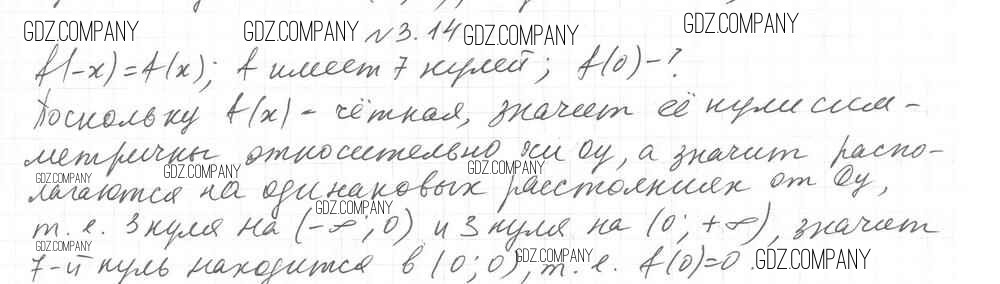 GDZ.COMPANY GDZ.COMPANY №3.14 GDZ.COMPANY GDZ.COMPANY
f(-x)=f(x); f имеет 7 нулей; f(0)-?
Поскольку f(x) - чётная, значит её нули сим-
метричны относительно оси Oy, а значит распо-
GDZ.COMPANY GDZ.COMPANY GDZ.COMPANY
лагаются на одинаковых расстояниях от Oy,
GDZ.COMPANY
т. е. 3 нуля на (-∞; 0) и 3 нуля на (0; +∞), значит
GDZ.COMPANY GDZ.COMPANY GDZ.COMPANY
7-й нуль находится в (0; 0), т. е. f(0)=0.